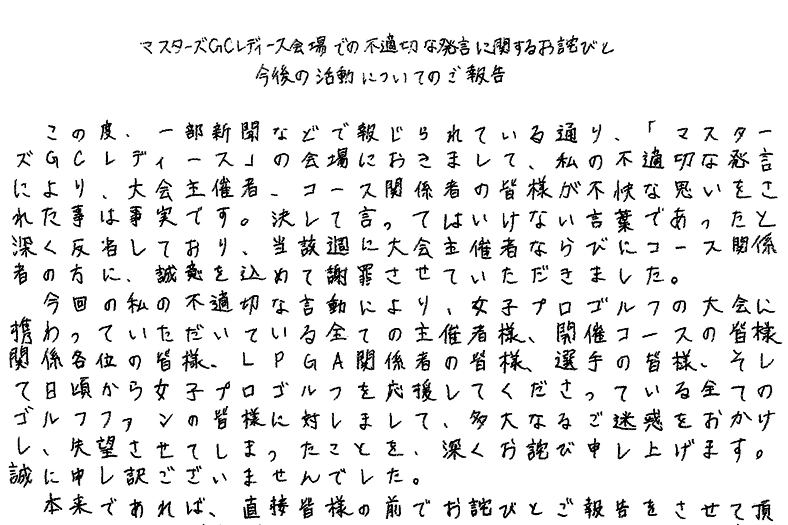 マスターズGCレディース会場での不適切な発言に関するお詫びと
今後の活動についてのご報告
この度、一部新聞などで報じられている通り、「マスター
ズGCレディース」の会場におきまして、私の不適切な発言
により、大会主催者、コース関係者の皆様が不快な思いをさ
れた事は事実です。決して言ってはいけない言葉であったと
深く反省しており、当該週に大会主催者ならびにコース関係
者の方に、誠意を込めて謝罪させていただきました。
今回の私の不適切な言動により、女子プロゴルフの大会に
携わっていただいている全ての主催者様、開催コースの皆様
関係各位の皆様、LPGA関係者の皆様、選手の皆様、そし
て日頃から女子プロゴルフを応援してくださっている全ての
ゴルフファンの皆様に対しまして、多大なるご迷惑をおかけ
し、失望させてしまったことを、深くお詫び申し上げます。
誠に申し訳ございませんでした。
本来であれば、直接皆様の前でお詫びとご報告をさせて頂